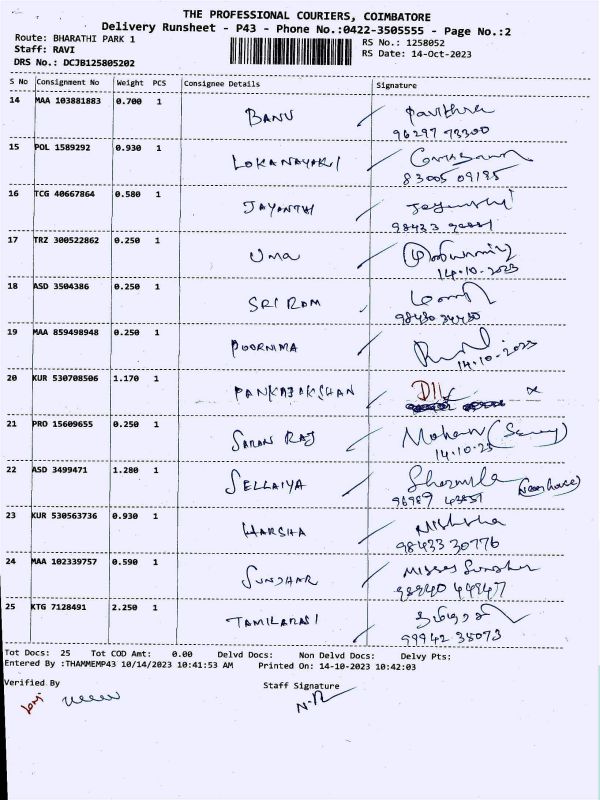 THE PROFESSIONAL COURIERS, COIMBATORE
Delivery Runsheet - P43 - Phone No.:0422-3505555 - Page No.:2
Route: BHARATHI PARK 1
RS No.: 1258052
Staff: RAVI
RS Date: 14-Oct-2023
DRS No.: DCJB125805202
S No Consignment No Weight PCS Consignee Details Signature
14 MAA 103881883 0.700 1 BANU Pavithra
96297 73300
15 POL 1589292 0.930 1 LOKANAYAKI
83005 09185
16 TCG 40667864 0.580 1 JAYANTHI Jayanthi
98433
17 TRZ 300522862 0.250 1 Uma
14.10.2023
18 ASD 3504386 0.250 1 SRI RAM
19 MAA 859498948 0.250 1 POORNIMA
14.10.2023
20 KUR 530708506 1.170 1 PANKAJAKSHAN D/L
21 PRO 15609655 0.250 1 SARAN RAJ Mohan
14.10.23
22 ASD 3499471 1.280 1 SELLAIYA Sharmila
96989 43851
23 KUR 530563736 0.930 1 HARSHA Nishsha
98433 30776
24 MAA 102339757 0.590 1 SUNDHAR Misses Sundhar
98940 44947
25 KTG 7128491 2.250 1 TAMILARASI
99942 35073
Tot Docs: 25 Tot COD Amt: 0.00 Delvd Docs: Non Delvd Docs: Delvy Pts:
Entered By :THAMMEMP43 10/14/2023 10:41:53 AM Printed On: 14-10-2023 10:42:03
Verified By Staff Signature